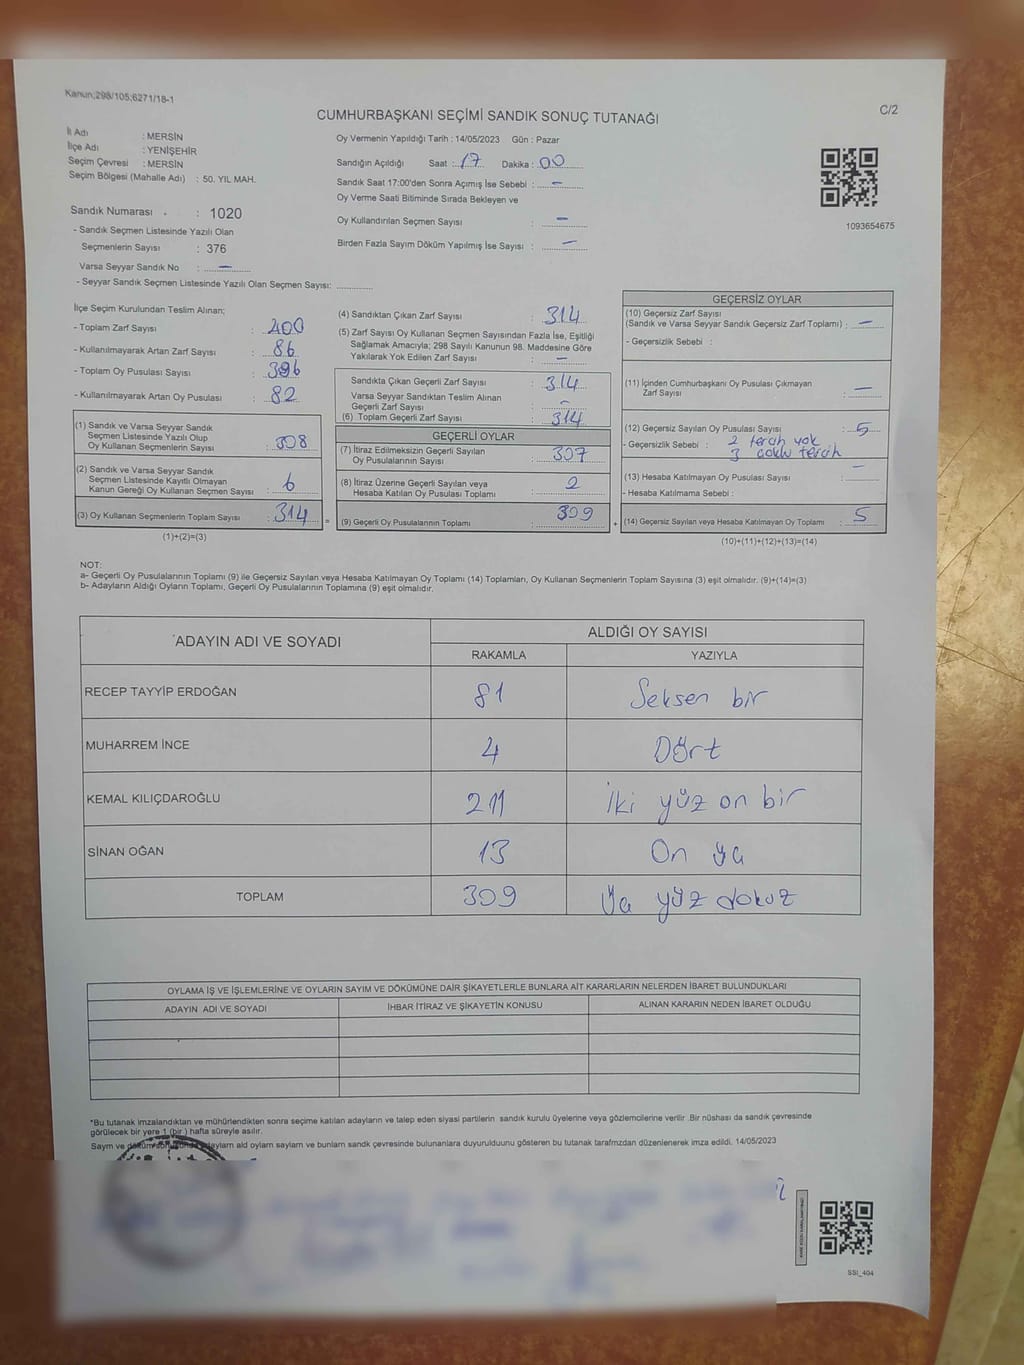 Kanun;298/105;6271/18-1
C/2
CUMHURBAŞKANI SEÇİMİ SANDIK SONUÇ TUTANAĞI
İl Adı : MERSİN
İlçe Adı : YENİŞEHİR
Seçim Çevresi : MERSİN
Seçim Bölgesi (Mahalle Adı) : 50. YIL MAH.
Sandık Numarası : 1020
- Sandık Seçmen Listesinde Yazılı Olan
Seçmenlerin Sayısı : 376
Varsa Seyyar Sandık No : –
- Seyyar Sandık Seçmen Listesinde Yazılı Olan Seçmen Sayısı:
Oy Vermenin Yapıldığı Tarih : 14/05/2023 Gün : Pazar
Sandığın Açıldığı Saat : 17 Dakika : 00
Sandık Saat 17:00'den Sonra Açımış İse Sebebi : –
Oy Verme Saati Bitiminde Sırada Bekleyen ve
Oy Kullandırılan Seçmen Sayısı : –
Birden Fazla Sayım Döküm Yapılmış İse Sayısı : –
1093654675
İlçe Seçim Kurulundan Teslim Alınan;
- Toplam Zarf Sayısı : 400
- Kullanılmayarak Artan Zarf Sayısı : 86
- Toplam Oy Pusulası Sayısı : 396
- Kullanılmayarak Artan Oy Pusulası : 82
(1) Sandık ve Varsa Seyyar Sandık
Seçmen Listesinde Yazılı Olup
Oy Kullanan Seçmenlerin Sayısı : 308
(2) Sandık ve Varsa Seyyar Sandık
Seçmen Listesinde Kayıtlı Olmayan
Kanun Gereği Oy Kullanan Seçmen Sayısı : 6
(3) Oy Kullanan Seçmenlerin Toplam Sayısı : 314
(1)+(2)=(3)
(4) Sandıktan Çıkan Zarf Sayısı : 314
(5) Zarf Sayısı Oy Kullanan Seçmen Sayısından Fazla İse, Eşitliği
Sağlamak Amacıyla; 298 Sayılı Kanunun 98. Maddesine Göre
Yakılarak Yok Edilen Zarf Sayısı : –
Sandıkta Çıkan Geçerli Zarf Sayısı : 314
Varsa Seyyar Sandıktan Teslim Alınan
Geçerli Zarf Sayısı : –
(6) Toplam Geçerli Zarf Sayısı : 314
GEÇERLİ OYLAR
(7) İtiraz Edilmeksizin Geçerli Sayılan
Oy Pusulasının Sayısı : 307
(8) İtiraz Üzerine Geçerli Sayılan veya
Hesaba Katılan Oy Pusulası Toplamı : 2
= (9) Geçerli Oy Pusulalarının Toplamı : 309
GEÇERSİZ OYLAR
(10) Geçersiz Zarf Sayısı
(Sandık ve Varsa Seyyar Sandık Geçersiz Zarf Toplamı) : –
- Geçersizlik Sebebi :
(11) İçinden Cumhurbaşkanı Oy Pusulası Çıkmayan
Zarf Sayısı : –
(12) Geçersiz Sayılan Oy Pusulası Sayısı : 5
- Geçersizlik Sebebi : 2 tercih yok
3 çoklu tercih
(13) Hesaba Katılmayan Oy Pusulası Sayısı : –
- Hesaba Katılmama Sebebi :
+ (14) Geçersiz Sayılan veya Hesaba Katılmayan Oy Toplamı : 5
(10)+(11)+(12)+(13)=(14)
NOT:
a- Geçerli Oy Pusulalarının Toplamı (9) ile Geçersiz Sayılan veya Hesaba Katılmayan Oy Toplamı (14) Toplamları, Oy Kullanan Seçmenlerin Toplam Sayısına (3) eşit olmalıdır. (9)+(14)=(3)
b- Adayların Aldığı Oyların Toplamı, Geçerli Oy Pusulalarının Toplamına (9) eşit olmalıdır.
ADAYIN ADI VE SOYADI ALDIĞI OY SAYISI
RAKAMLA YAZIYLA
RECEP TAYYİP ERDOĞAN 81 Seksen bir
MUHARREM İNCE 4 Dört
KEMAL KILIÇDAROĞLU 211 İki yüz on bir
SİNAN OĞAN 13 On üç
TOPLAM 309 Üç yüz dokuz
OYLAMA İŞ VE İŞLEMLERİNE VE OYLARIN SAYIM VE DÖKÜMÜNE DAİR ŞİKAYETLERLE BUNLARA AİT KARARLARIN NELERDEN İBARET BULUNDUKLARI
ADAYIN ADI VE SOYADI İHBAR İTİRAZ VE ŞİKAYETİN KONUSU ALINAN KARARIN NEDEN İBARET OLDUĞU
*Bu tutanak imzalandıktan ve mühürlendikten sonra seçime katılan adayların ve talep eden siyasi partilerin sandık kurulu üyelerine veya gözlemcilerine verilir .Bir nüshası da sandık çevresinde
görülecek bir yere 1 (bir ) hafta süreyle asılır.
Saym ve döküm adaylarn ald oylarn saylarn ve bunlarn sandk çevresinde bulunanlara duyurulduunu gösteren bu tutanak tarafmzdan düzenlenerek imza edildi. 14/05/2023
SSİ_404